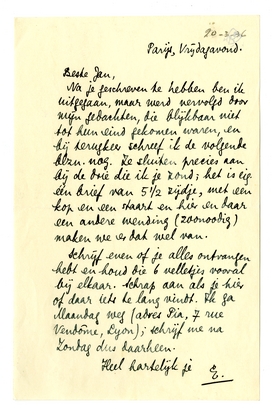 20-3-36
Parijs, Vrijdagavond.
Beste Jan,
Na je geschreven te hebben ben ik
uitgegaan, maar werd vervolgd door
mijn gedachten, die blijkbaar niet
tot hun eind gekomen waren, en
bij terugkeer schreef ik de volgende
blzn. nog. Ze sluiten precies aan
bij de drie die ik je zond; het is
een brief van 5 1/2 zijdje, met een
kop en een staart en hier en daar
een andere wending (zoonoodig)
maken we er dat wel van.
Schrijf even of je alles ontvangen
hebt en houd die 6 velletjes vooral
bij elkaar. Schrap aan als je hier
of daar iets te lang vindt. Ik ga
Maandag weg (adres Pia, 7 rue
Vendôme, Lyon); schrijf me na
Zondag dus daarheen.
Heel hartelijk je
E.